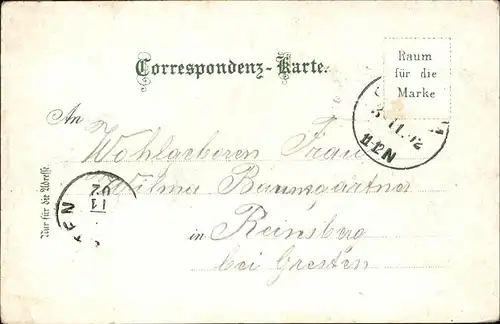 Correspondenz-Karte.
Raum
für die
Marke
An
Wohlgeboren Frau
Wilma Baumgartner
in Reinsberg
bei Gresten
Nur für die Adresse.
11-12N
11
02